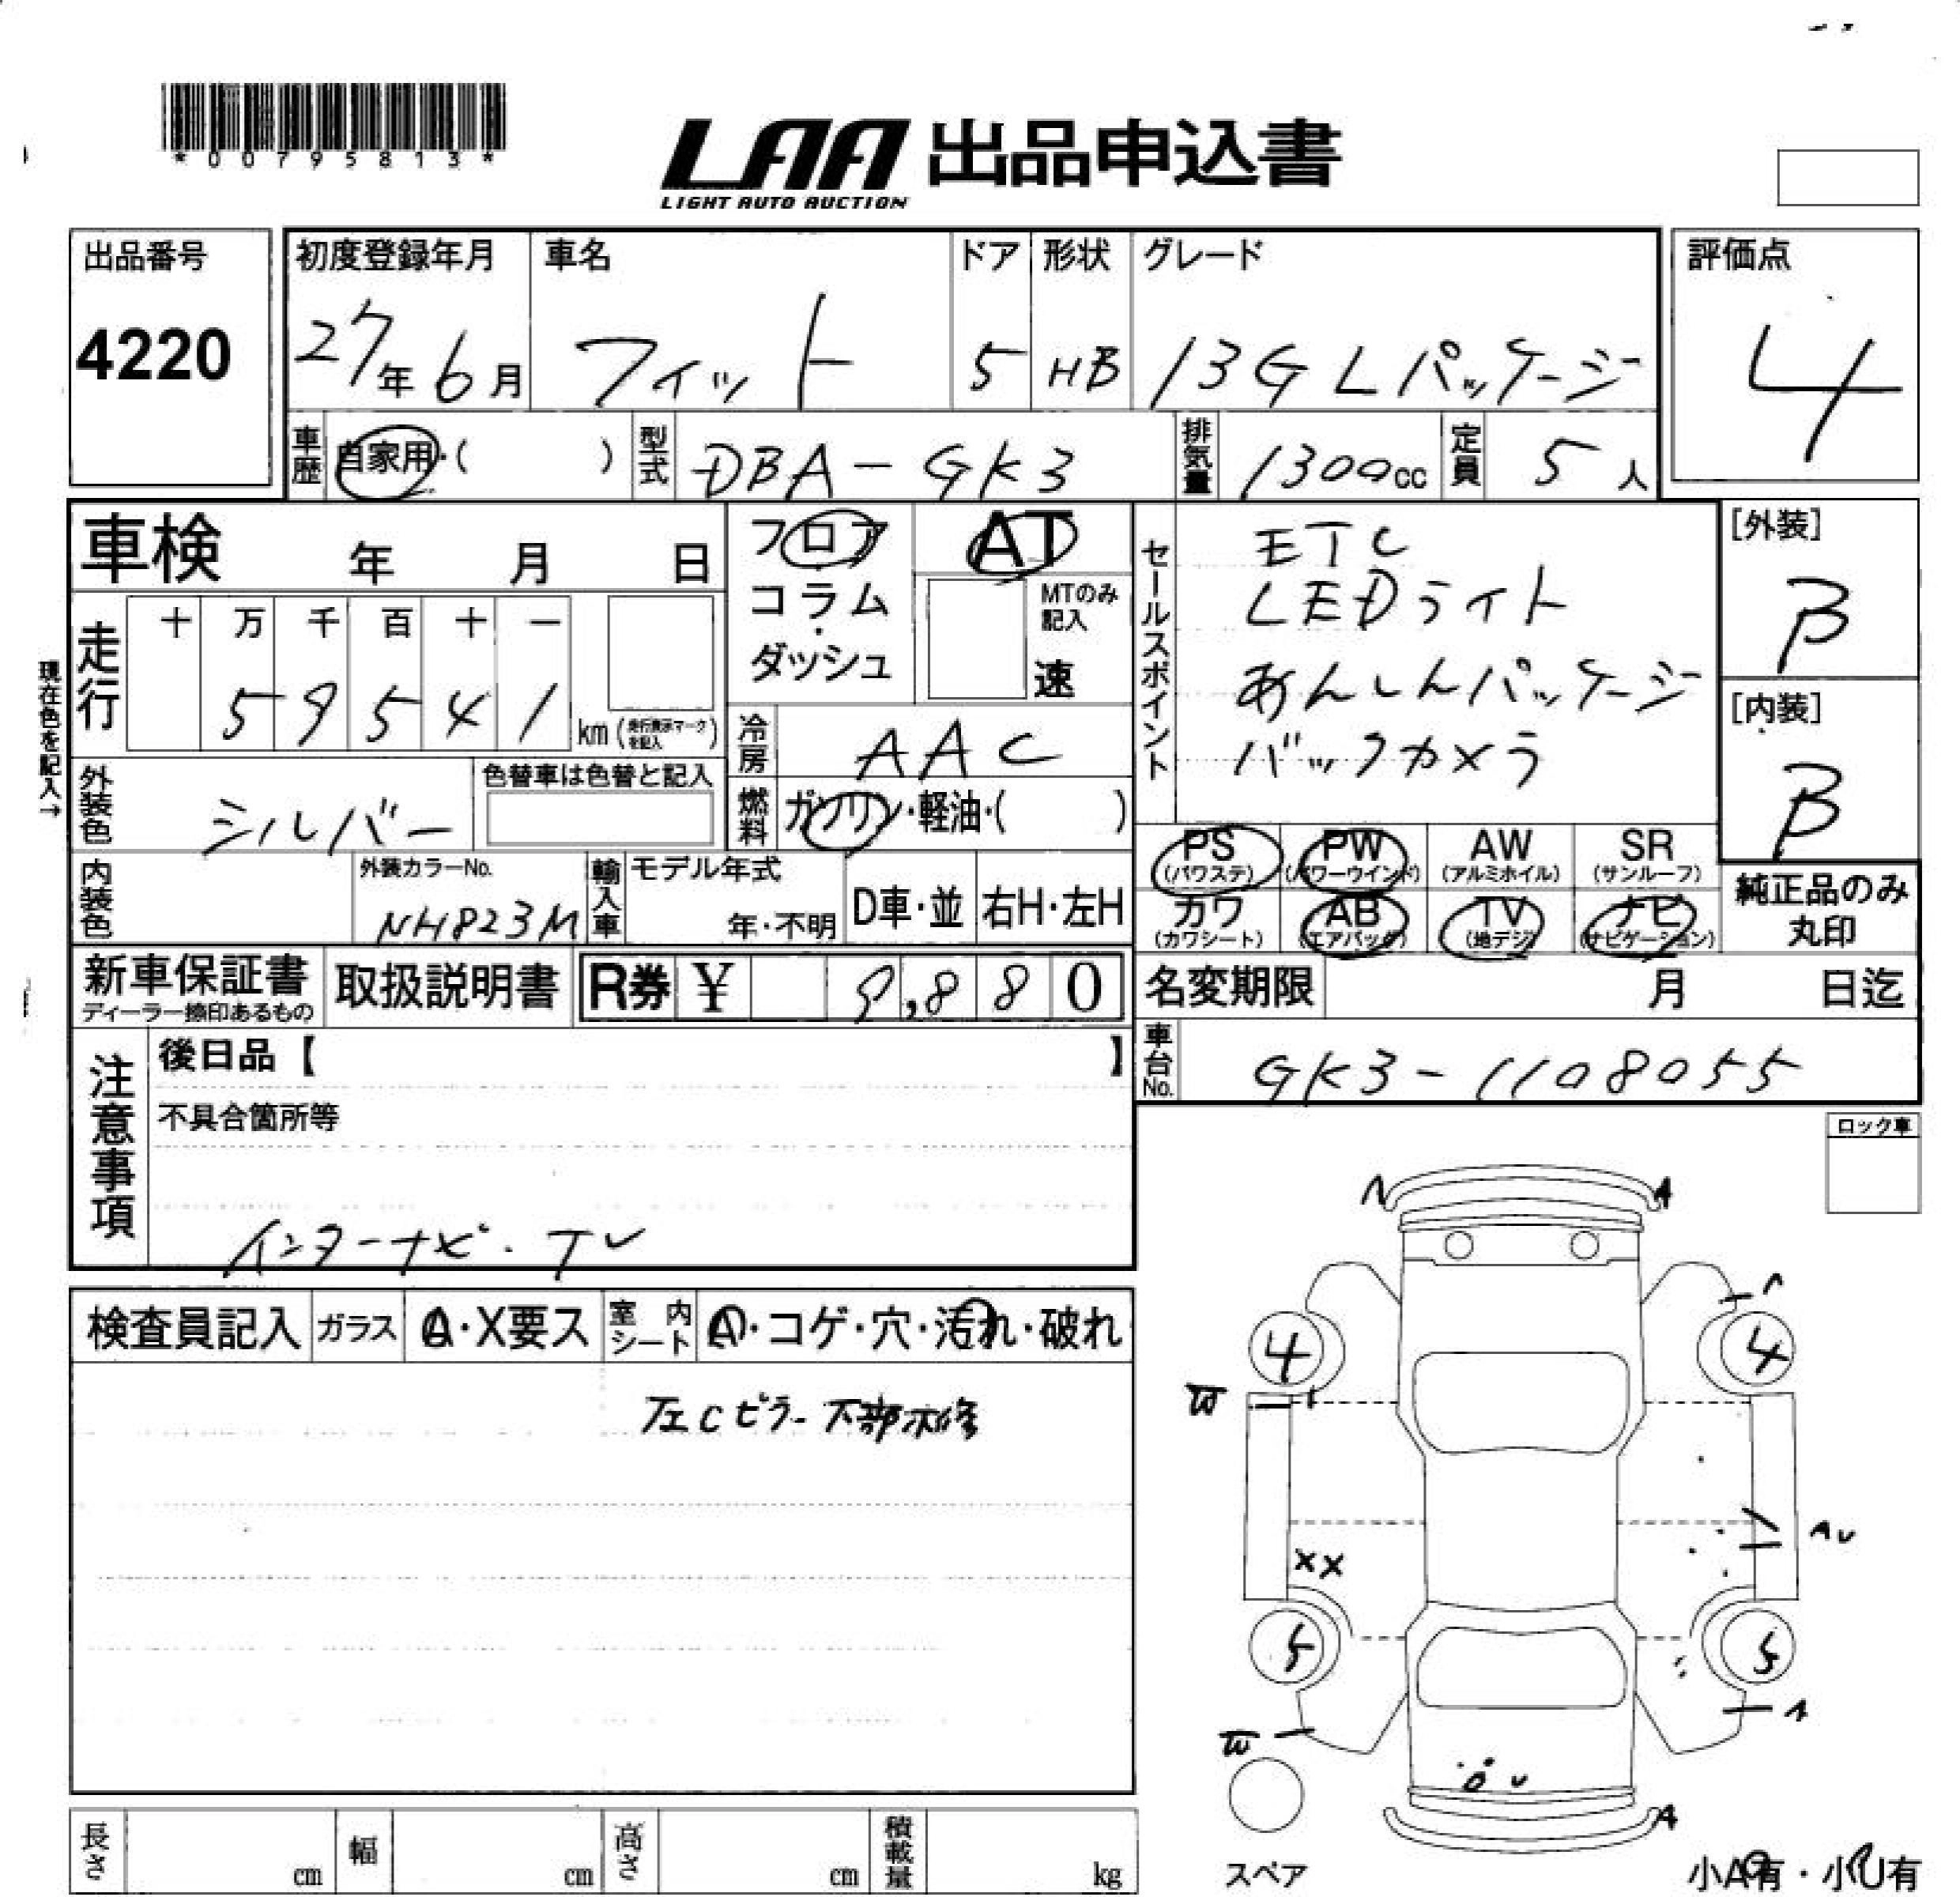 *00795813*
LAA 出品申込書
LIGHT AUTO AUCTION
出品番号
4220
初度登録年月 車名 ドア 形状 グレード
27年6月 フィット 5 HB 13G Lパッケージ
評価点
4
車歴 自家用・( ) 型式 DBA-GK3 排気量 1300cc 定員 5人
車検 年 月 日
フロア
コラム
・
ダッシュ
AT
MTのみ記入
速
走行 十 万 千 百 十 一
5 9 5 4 1 km
現在色を記入→
冷房 AAC
外装色 シルバー
色替車は色替と記入
燃料 ガソリン・軽油・( )
セールスポイント
ETC
LEDライト
あんしんパッケージ
バックカメラ
[外装]
B
[内装]
B
内装色
外装カラーNo.
NH823M
輸入車 モデル年式
年・不明 D車・並 右H・左H
PS PW AW SR
(パワステ) (パワーウインド) (アルミホイル) (サンルーフ)
カワ AB TV ナビ
(カワシート) (エアバッグ) (地デジ) (ナビゲーション)
純正品のみ
丸印
新車保証書
ディーラー捺印あるもの
取扱説明書 R券 ¥ 9,880
名変期限 月 日迄
車台No. GK3-1108055
注意事項
後日品【 】
不具合箇所等
インターナビ・TV
ロック車
検査員記入 ガラス A・X要ス 室内シート A・コゲ・穴・汚れ・破れ
左Cピラー下部
A
4 4
W
XX
AU
5 5
A
W
U
A
スペア
小A有・小U有
長さ cm 幅 cm 高さ cm 積載量 kg